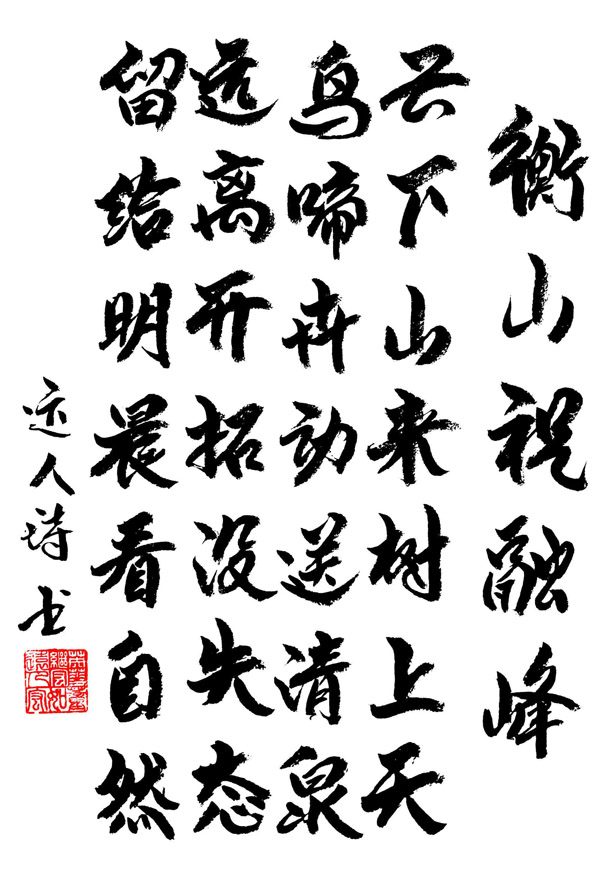 衡山祝融峰
云下山来树上天
鸟啼卉动送清泉
远离开拓没失态
留给明晨看自然
人诗书